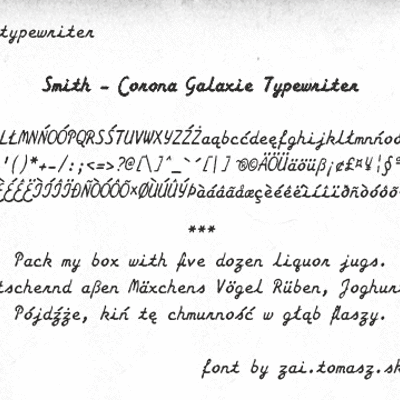 typewriter
Smith - Corona Galaxie Typewriter
LŁMNŃOÓPQRSŚTUVWXYZŹŻaąbcćdeęfghijklłmnńoó
'()*+-/:;<=>?@[\]^_`´[|]
***
Pack my box with five dozen liquor jugs.
tschernd aßen Mäxchens Vögel Rüben, Joghurt
Pójdźże, kiń tę chmurność w głąb flaszy.
font by zai.tomasz.sk